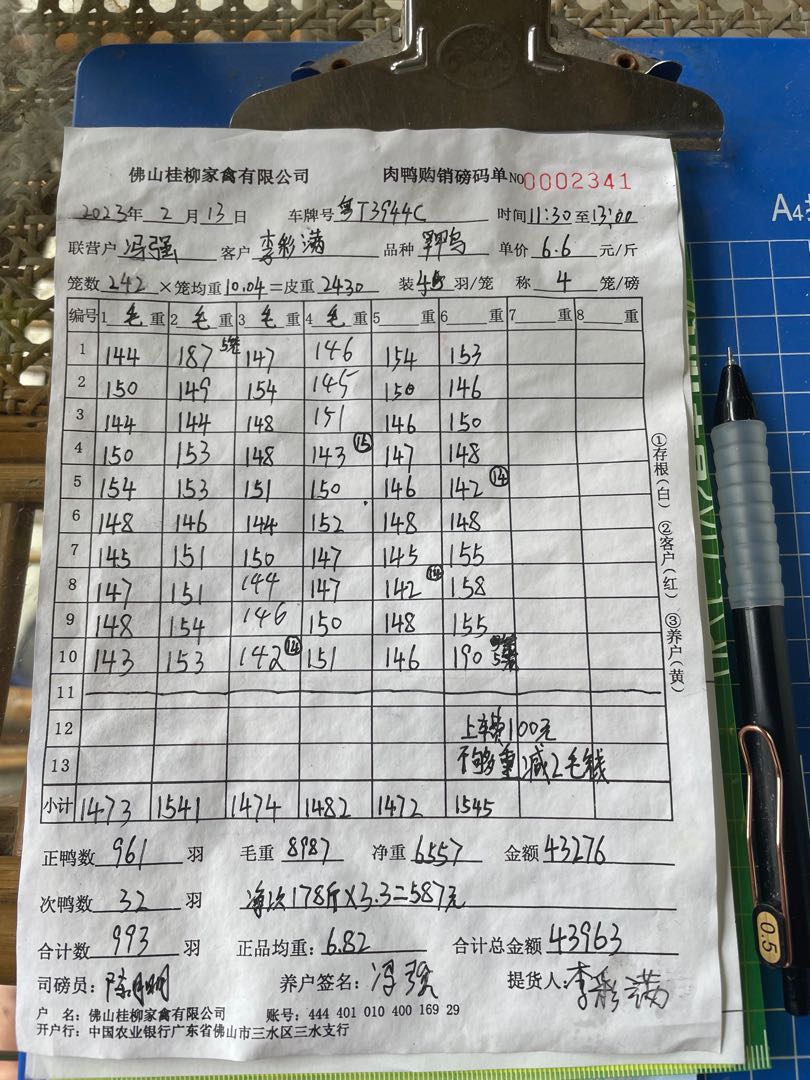 佛山桂柳家禽有限公司 肉鸭购销磅码单 NO 0002341
2023年 2 月 13 日 车牌号 粤T3944C 时间 11:30 至 13:00
联营户 冯强 客户 李彩满 品种 单价 6.6 元/斤
笼数 242 ×笼均重 10.04 =皮重 2430 装 羽/笼 称 4 笼/磅
编号 1 毛 重 2 毛 重 3 毛 重 4 毛 重 5 重 6 重 7 重 8 重
1 144 187 5笼 147 146 154 153
2 150 149 154 145 150 146
3 144 144 148 151 146 150
4 150 153 148 143 ⑮ 147 148
5 154 153 151 150 146 142 ⑭
6 148 146 144 152 148 148
7 145 151 150 147 145 155
8 147 151 144 147 142 ⑭ 158
9 148 154 146 150 148 155
10 143 153 142 ⑭ 151 146 190
11
12 上车费100元
13 不够重减2毛钱
小计 1473 1541 1474 1482 1472 1545
①存根(白) ②客户(红) ③养户(黄)
正鸭数 961 羽 毛重 8987 净重 6557 金额 43276
次鸭数 32 羽 净次178斤×3.3=587元
合计数 993 羽 正品均重: 6.82 合计总金额 43963
司磅员: 养户签名: 冯强 提货人: 李彩满
户 名: 佛山桂柳家禽有限公司 账号: 444 401 010 400 169 29
开户行: 中国农业银行广东省佛山市三水区三水支行
A4
0.5